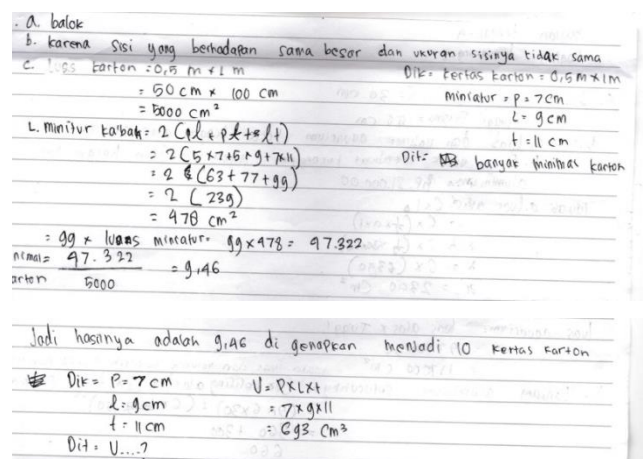 a. balok
b. karena sisi yang berhadapan sama besar dan ukuran sisinya tidak sama
c. Luas karton = 0,5 m x 1 m
= 50 cm x 100 cm
= 5000 cm²
L. minitur ka'bah = 2 (pl + pt + lt)
= 2 (5x7+5x9+7x11)
= 2 (63+77+99)
= 2 (239)
= 478 cm²
= 99 x luas miniatur = 99x478 = 47.322
nimal = 47.322 / 5000 = 9,46
arton
Dik = Kertas karton = 0,5 m x 1m
miniatur = p = 7 cm
L = 9 cm
t = 11 cm
Dit = banyak minimal karton
Jadi hasinya adalah 9,46 di genapkan menjadi 10 kertas karton
Dik = P = 7 cm
l = 9 cm
t = 11 cm
Dit = V....?
V = PxLxt
= 7x9x11
= 693 cm³